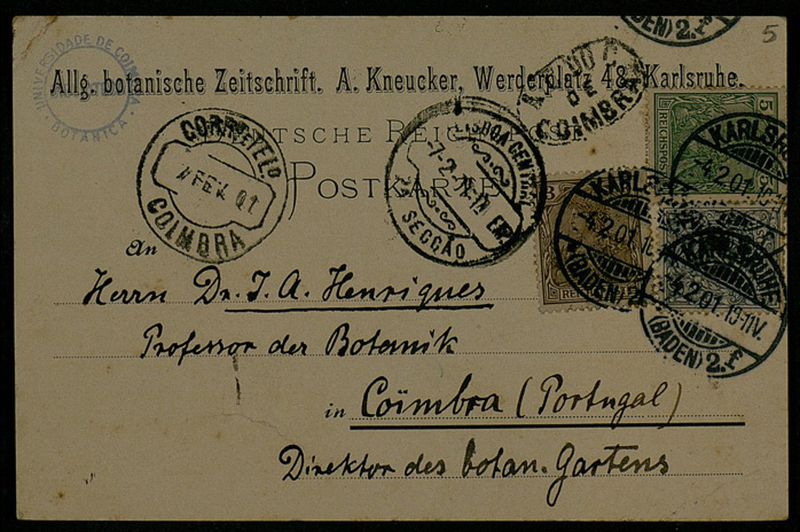 5
UNIVERSIDADE DE COIMBRA
BOTANICA
(BADEN) 2.f
Allg. botanische Zeitschrift. A. Kneucker, Werderplatz 48, Karlsruhe.
DE
COIMBRA
DEUTSCHE REICHSPOST
POSTKARTE
CORREIO E TELO
7 FEV. 01
COIMBRA
LISBOA CENTRAL
SECÇÃO
5
5
REICHSPOST
3
KARLSRUHE
4.2.01.
(BADEN) 2.
KARLSRUHE
4.2.01.
KARLSRUHE
4.2.01. 10-11V.
(BADEN) 2.f
An
Herrn Dr. J. A. Henriques
Professor der Botanik
in Coïmbra (Portugal)
Direktor des botan. Gartens